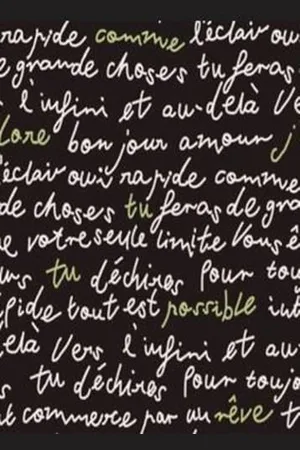 rapide comme l'éclair ou
e grande choses tu feras
l'infini et au-delà Ve
lore bonjour amour j
'éclair oui rapide comme
de choses tu feras de gra
e votre seule limite Vous ê
urs tu déchires Pour tou
pide tout est possible int
delà Vers l'infini et au
s tu déchires Pour toujo
t commerce par un rêve t